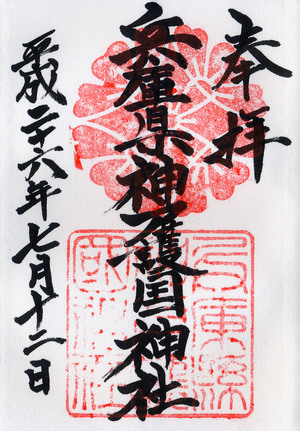 奉拝
兵庫県神戸護国神社
平成二十六年七月十二日
兵庫縣
國神社